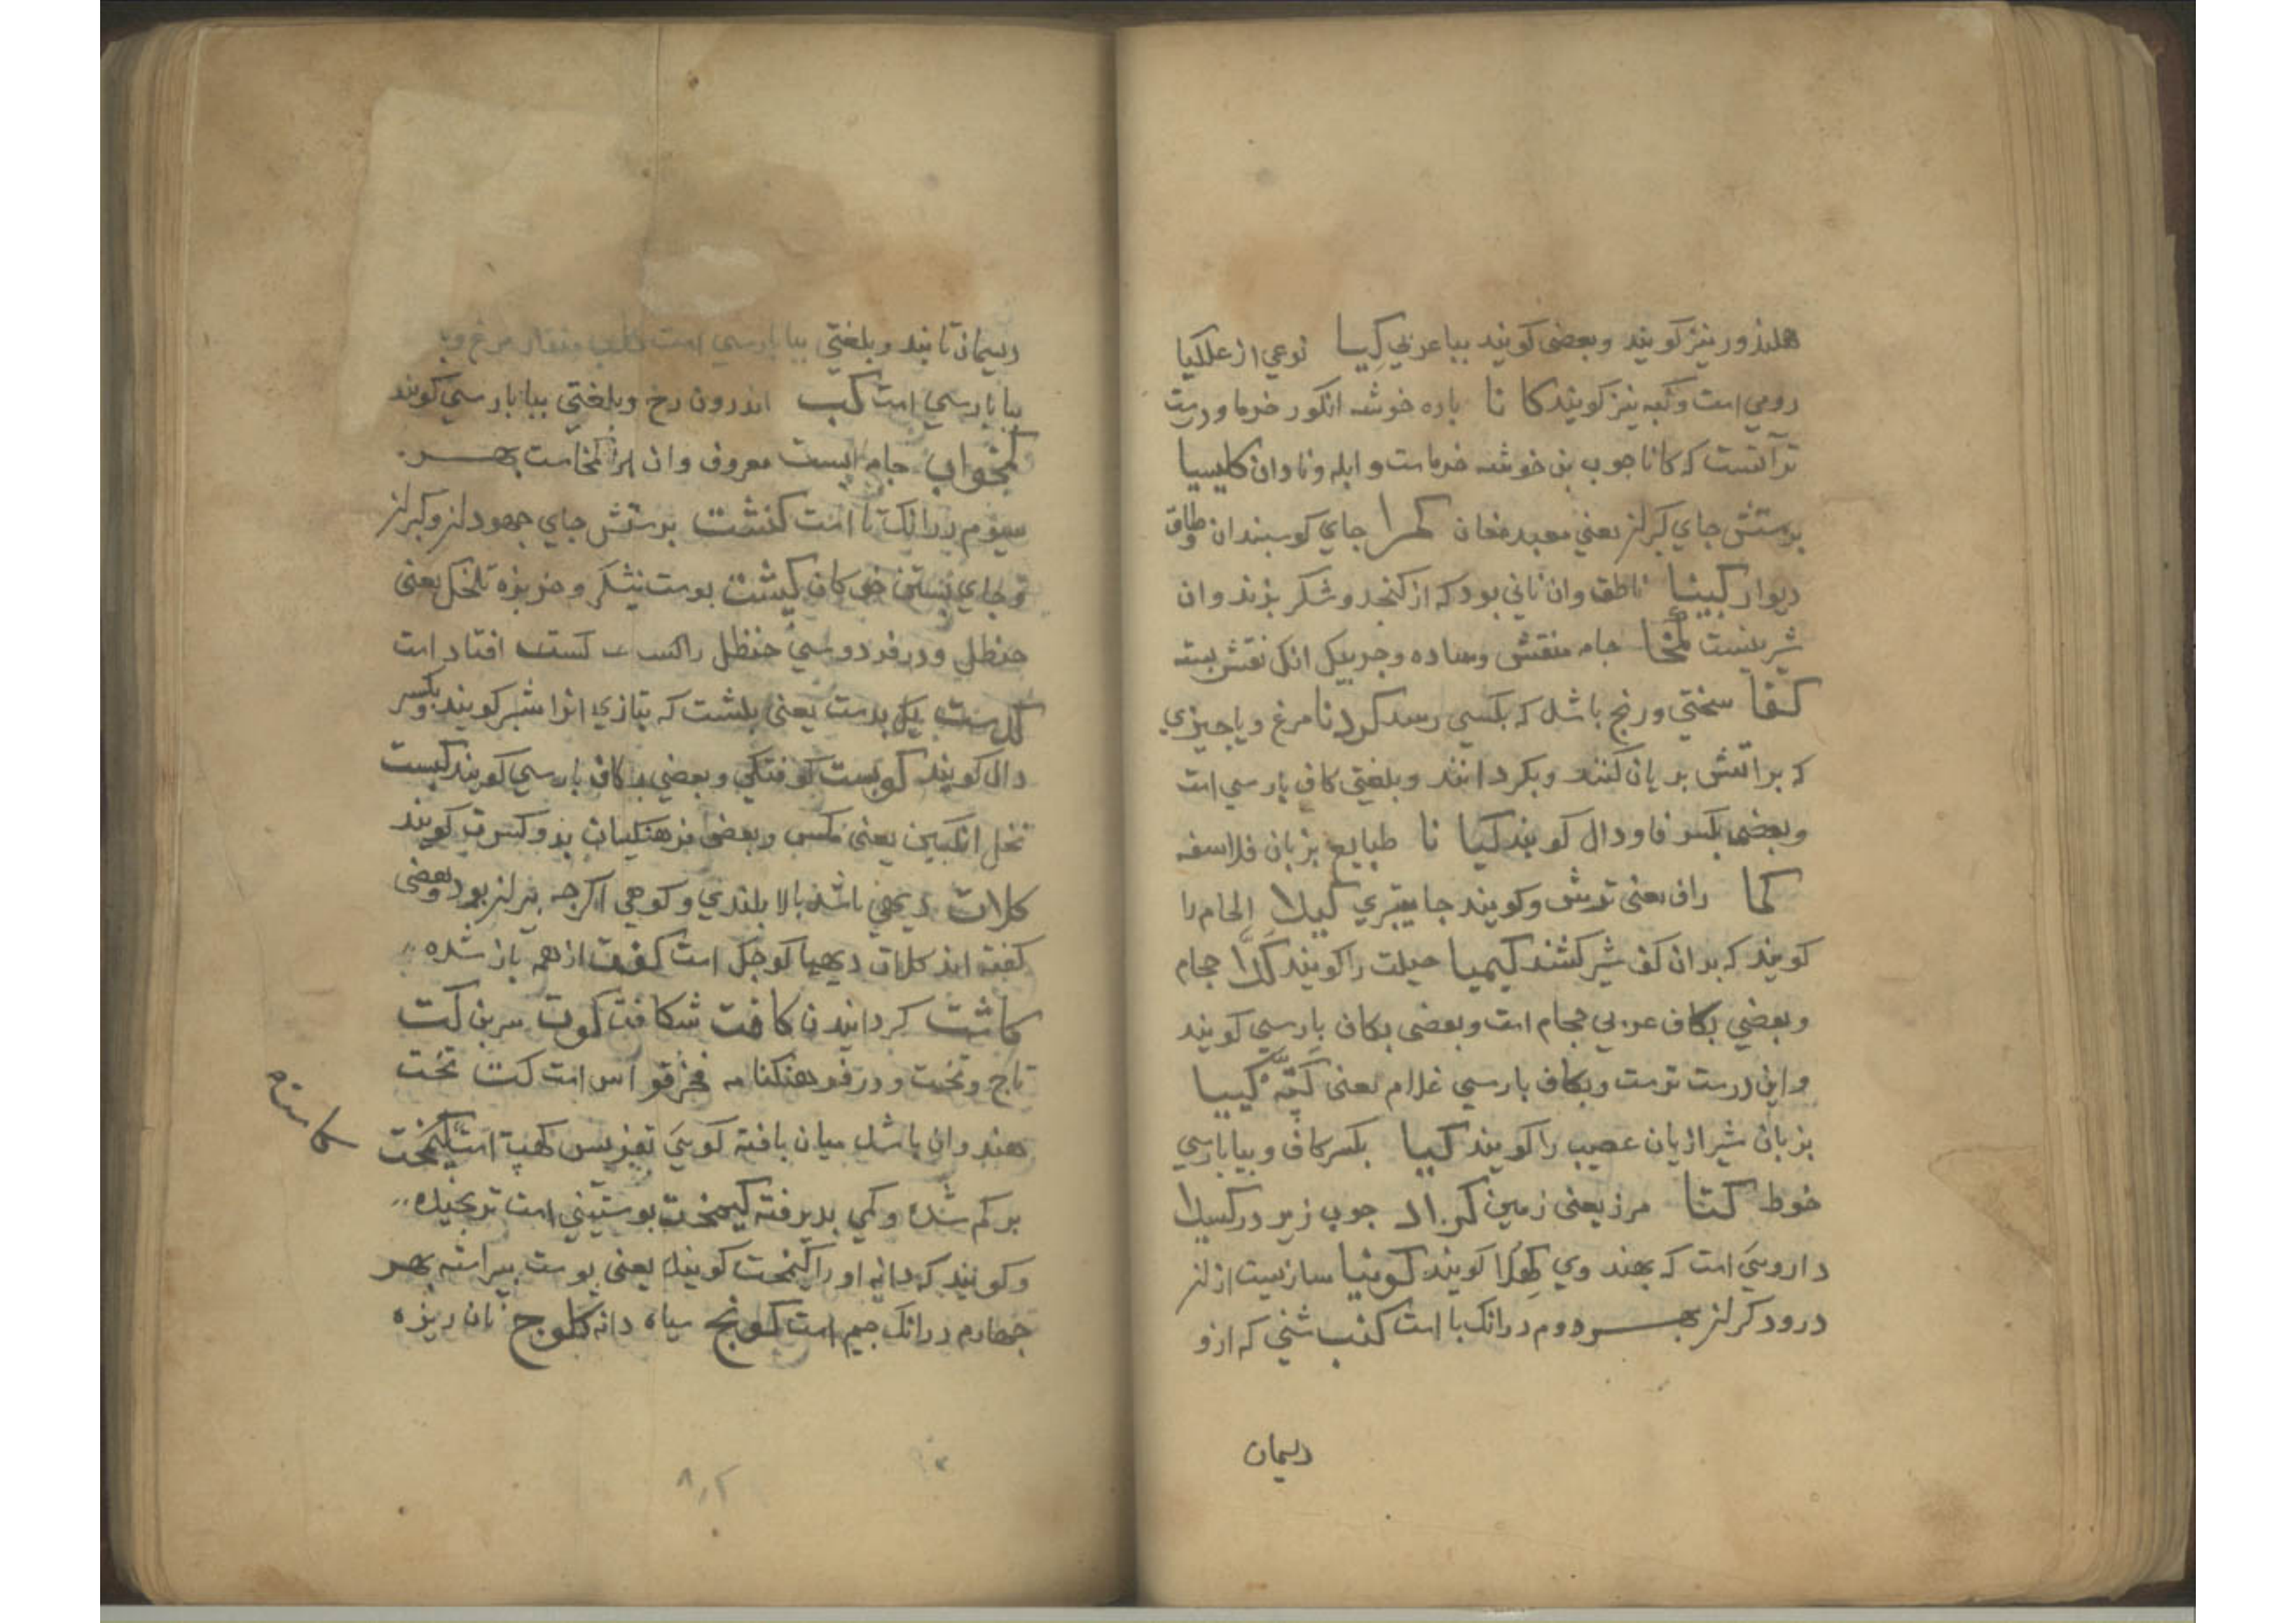 هلندوز نیز کویند وبعضی کویند ببا عربی کیسا نوعی از علکیا
رومی است وکبه نیز کویند کا نا باره خوشه انکور خرما ودرست
تر آنست که کانا جوب بن خوشه خرماست و ابله ونادان کلیسیا
برستش جای کبران یعنی معبد مغان کمرا جای کوسبندان وطاق
دیوار کبیتا ناطف وان نانی بود که از کنجد وشکر بزند وان
شرینست کمخا جامه منقش وساده وجریبکی انک نقش بسته
کفا سختی ورنج باشد که بکسی رسد کردنا مرغ ویا جیزی
که براتش بریان کنند وبکردانند وبلغتی کاف بارسی است
وبعضی بکسر فا ودال کویند کیا نا طبایع بزبان فلاسفه
کما راف یعنی ترش وکویند جا بیتری کیلا الحام را
کویند که بدان کف شیر کشند کیمیا حیلت را کویند کدا حجام
وبعضی بکاف عربی حجام است وبعضی بکاف بارسی کویند
واین درست ترست وبکاف بارسی غلام یعنی کیبیا
بزبان شیرازیان عصیب را کویند کیبا بکسر کاف وببا بارسی
خوط کتا مرز یعنی زمین جوب زیر در کسیلا
دارویی است که بهند وی کویند کونیا سازیست از ان
درودکران بهر دوم در انک با است کنب شنی که ازو
ریسمان
ریسمان تابند وبلغتی ببا بارسی است منقار مرغ
ببا بارسی است کب اندرون رخ وبلغتی ببا بارسی کویند
کمخواب جامه ایست معروف وان کمخاست بهر
سیوم در انک تا است کنشت برستش جای جهودان وکبران
وجای نشستن کیشت بوست نیشکر وخربزه تلخک یعنی
حنظل ودر فردوسی حنظل را کبست افتاد است
کدست یک بدست یعنی بلشت که بتازی انرا شبر کویند وبکسر
دال کویند کوبست کوفتکی وبعضی با کاف بارسی کویند کبست
نحل انکبین یعنی مکس وبعضی فرهنکیان کویند
کلات دیهی باشد بالا بلندی وکوهی اکرجه بود وبعضی
کفته اند کلات دیهیا کوجک است کفت از هم باز شده
کاشت کردانیدن کافت شکافت کوت سرین کت
تاج وتخت ودر فرهنکنامه است کت تخت
هندوان باشد میان بافته کویی است
کاست
برکم شده وکمی بدیرفته کیمخت بوستینی است ترنجیده
وکویند که دانه او را کیمخت کویند یعنی بوست بیراسته بهر
جهارم در انک جیم است کونج سیاه دانه کلوج نان ریزه